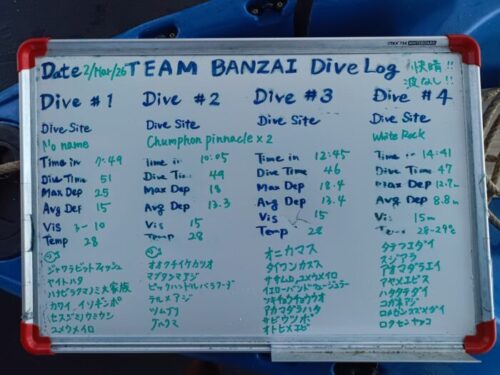 Date 2/Mar/26 TEAM BANZAI Dive Log 快晴!!
波なし!!
Dive #1
Dive Site
No name
Time in 7:49
Dive Time 51
Max Dep 25
Avg Dep 15
Vis 3-10
Temp 28
ジャワラビットフィッシュ
ヤイトハタ
ハナビラクマノミ大家族
カワイイソギンポ
セスジミウミウシ
ユメウメイロ
Dive #2
Dive Site
Chumphon pinnacle x 2
Time in 10:05
Dive Time 49
Max Dep 18
Avg Dep 13.3
Vis 15
Temp 28
オオクチイケカツオ
マブタシマアジ
ピックハンドルバラクーダ
テルメアジ
ツムブリ
グルクマ
Dive #3
Dive Site
Time in 12:45
Dive Time 46
Max Dep 18.4
Avg Dep 13.4
Vis 15
Temp 28
オニカマス
タイワンカマス
ササムロ,ユメウメイロ
ツキチョウチョウウオ
アカマダラハタ
サビウツボ
オトヒメエビ
Dive #4
Dive Site
White Rock
Time in 14:41
Dive Time 47
Max Dep 12.7m
Avg Dep 8.8m
Vis 15m
Temp 28-29℃
タテフエダイ
スジアラ
アオマダラエイ
アヤメエビス
ハタタテダイ
コガネアジ
ロクセンスズメダイ
ロクセンヤッコ